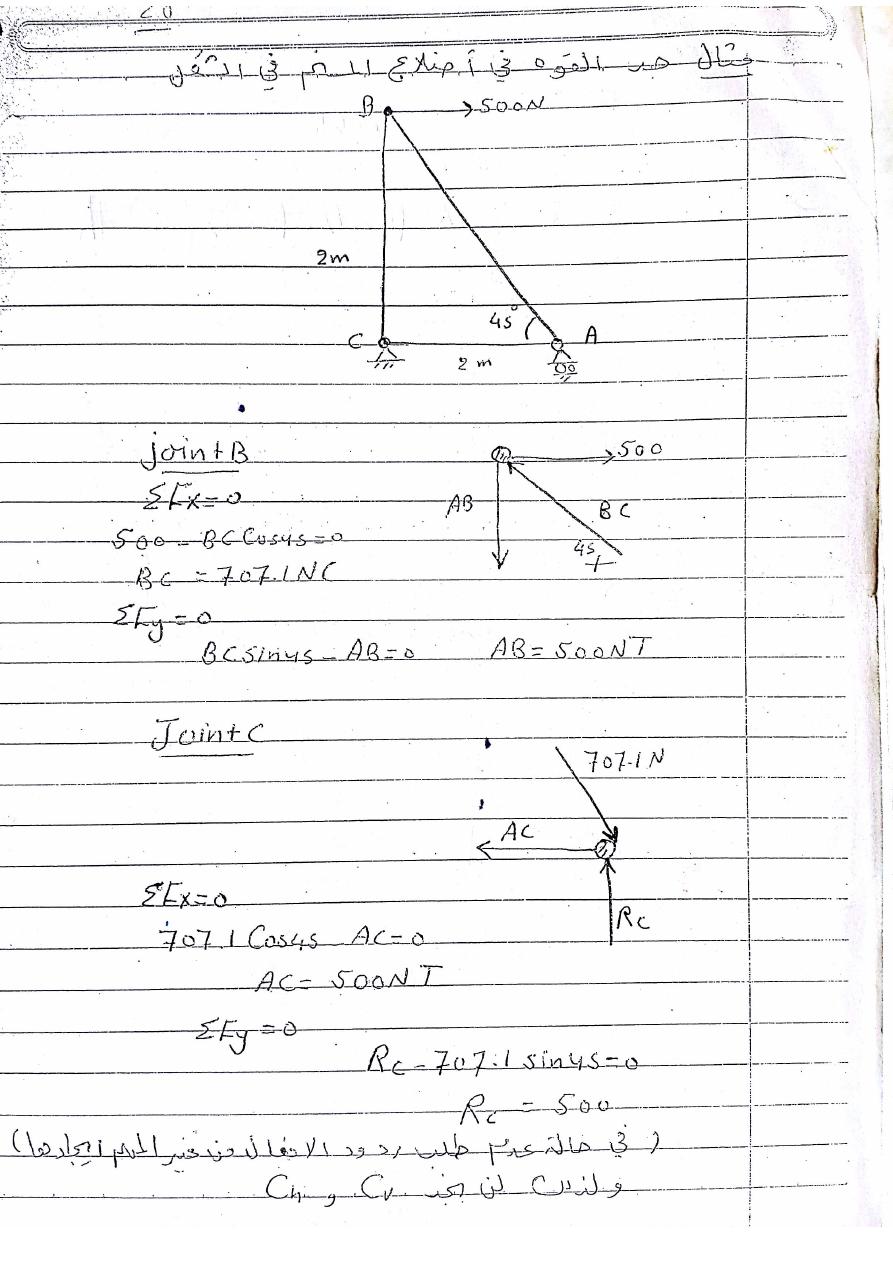 مثال جد القوه في أضلاع المسنم في الشكل
B
500N
2m
45°
C
A
2 m
joint B
ΣFx=0
500 - BC Cos45=0
BC = 707.1 N C
ΣFy=0
BC sin45 - AB=0 AB= 500N T
500
AB
BC
45
Joint C
707.1 N
AC
Rc
ΣFx=0
707.1 Cos45 AC=0
AC= 500N T
ΣFy=0
Rc - 707.1 sin45=0
Rc = 500
(في حالة عدم طلب ردود الافعال من غير المهم ايجادها)
ولذلك لن نجد Cv و Ch